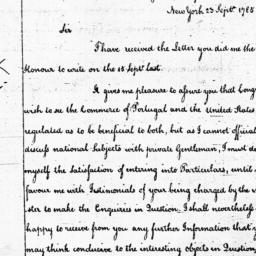 New York 23 Septr. 1785
Sir
I have received the Letter you did me the
Honour to write on the 15 Septr. last.
It gives me pleasure to assure you that Congr
wish to see the Commerce of Portugal and the United States
regulated as to be beneficial to both, but as I cannot official
discuss national Subjects with private Gentlemen, I must de
myself the Satisfaction of entering into Particulars, until
favour me with Testimonials of your being charged by the
ister to make the Enquiries in Question. I shall nevertheless
happy to receive from you any further Information that y
may think conducive to the interesting Objects in Question,